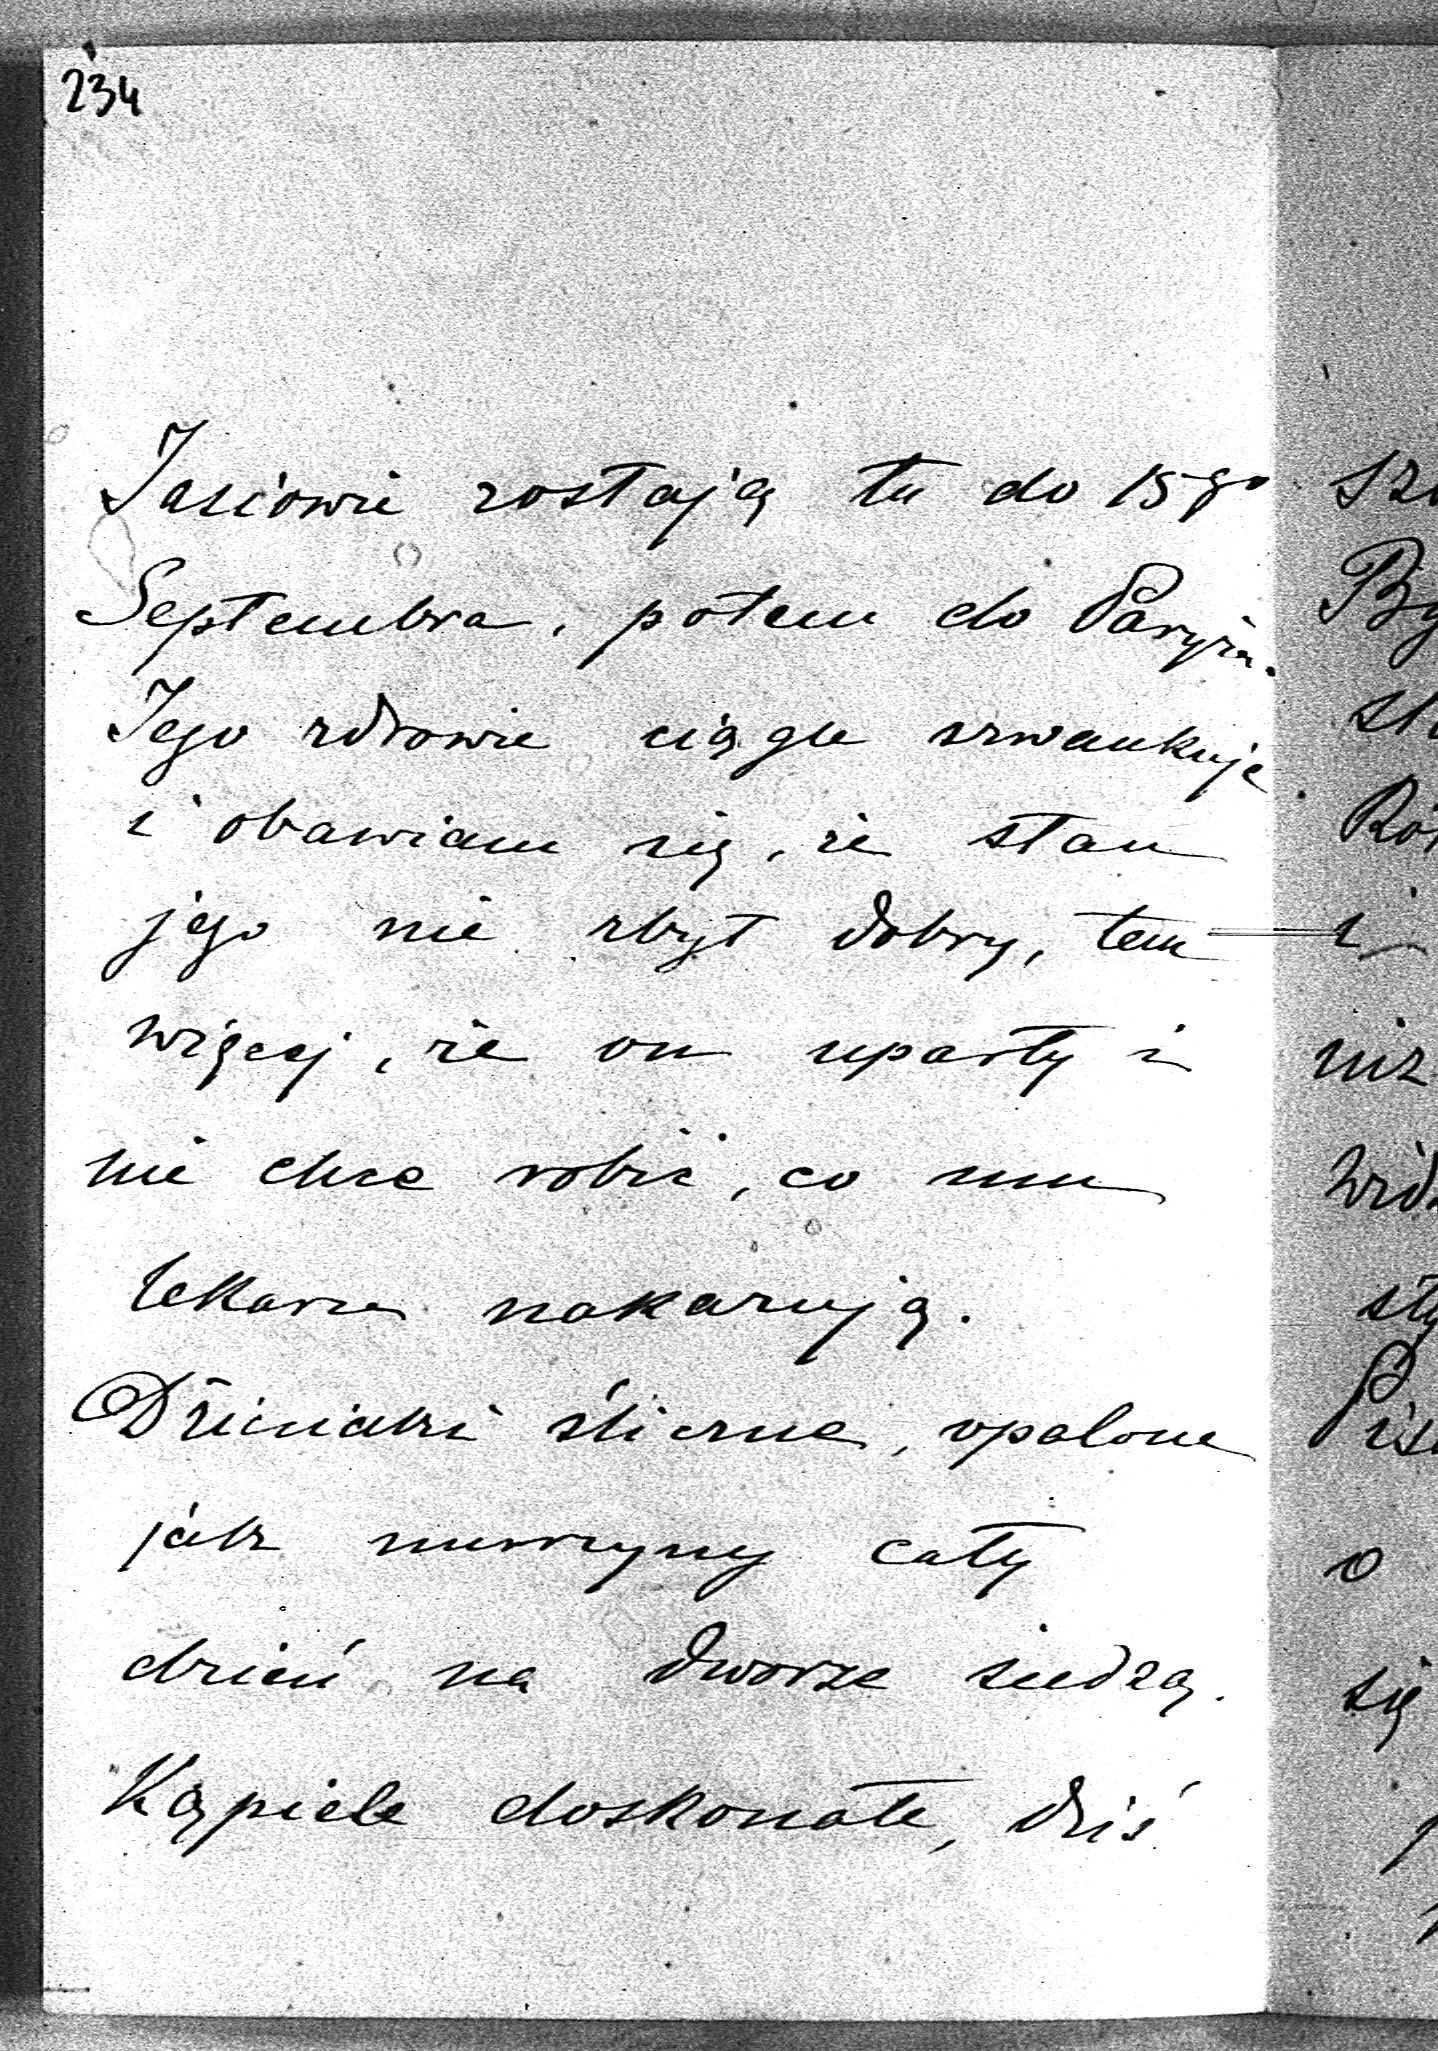 234
Jasiowie zostają tu do 15go
Septembra, potem do Paryża.
Jego zdrowie ciągle szwankuje
i obawiam się, że stan
jego nie zbyt dobry, tem
więcej, że on uparty i
nie chce robić, co mu
lekarze nakazują.
Dzieciaki śliczne, opalone
jak murzyny cały
dzień na dworze siedzą.
Kąpiele doskonałe, dziś